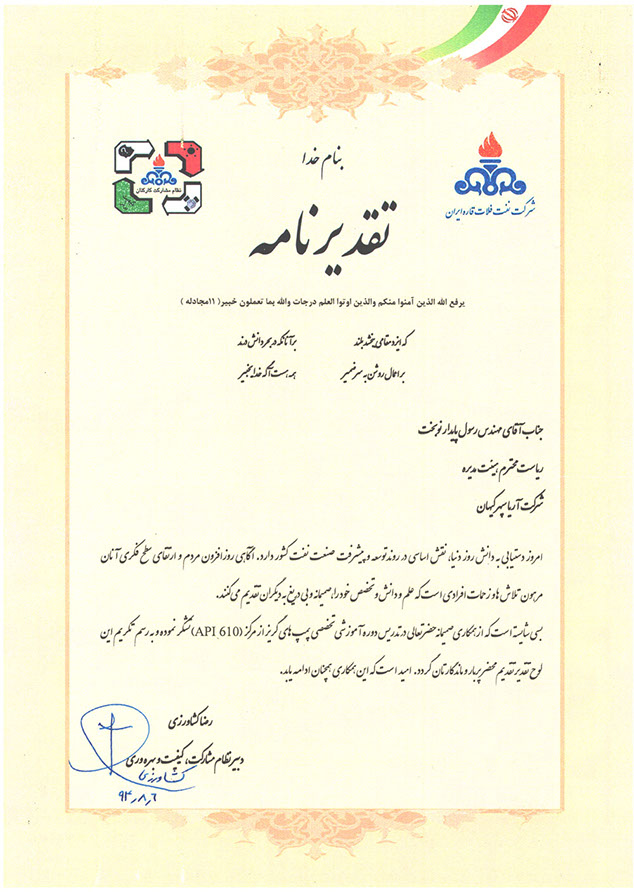 بنام خدا
نظام مشارکت کارکنان
شرکت نفت فلات قاره ایران
تقدیرنامه
یرفع الله الذین آمنوا منکم والذین اوتوا العلم درجات والله بما تعملون خبیر( ۱۱مجادله )
که ایزد مقامی ببخشد بلند برآنانکه در بحر دانش درند
بر اعمال روشن به سر ضمیر همه هست آگه خدا بخبیر
جناب آقای مهندس رسول پایدار نوبخت
ریاست محترم هیئت مدیره
شرکت آریا سپهر کیهان
امروز دستیابی به دانش روز دنیا، نقش اساسی در روند توسعه و پیشرفت صنعت نفت کشور دارد. آگاهی روزافزون مردم و ارتقای سطح فکری آنان
مرهون تلاش ها و زحمات افرادی است که علم و دانش و تخصص خود را صمیمانه و بی دریغ به دیگران تقدیم می کنند.
بسی شایسته است که از همکاری صمیمانه حضرتعالی در تدریس دوره آموزشی تخصصی پمپ های گریز از مرکز (API 610) تشکر نموده و به رسم تکریم این
لوح تقدیر تقدیم محضر پربار و ماندگارتان گردد. امید است که این همکاری همچنان ادامه یابد.
رضا کشاورزی
دبیر نظام مشارکت، کیفیت و بهره وری
کشاورزی
۹۴٫۸٫۶